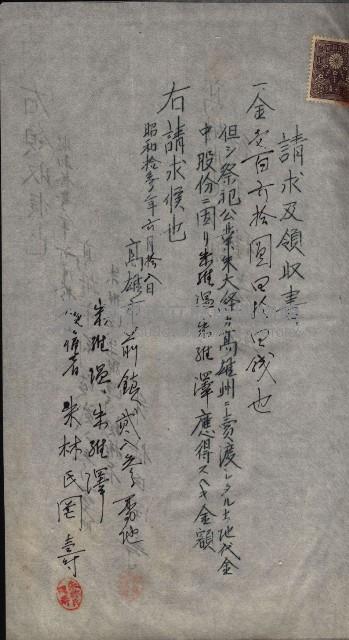 請求及領收書
一金壹百六拾圓四拾四錢也
但シ祭祀公業朱大條ヨリ高雄州ニ賣渡シタル土地代金
中股份ニ因リ朱維溫、朱維澤應得スヘキ金額
右請求候也
昭和拾 年六月拾 日
高雄市前鎮貳八 番地
朱維溫、朱維澤
朱林氏岡壽